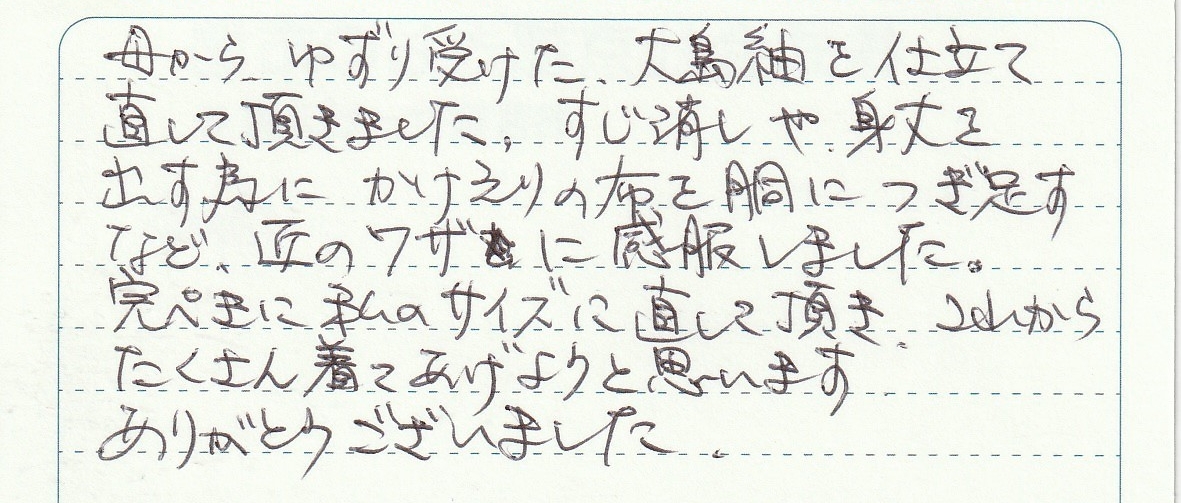 母から ゆずり受けた、大島紬を仕立て
直して頂きました。すじ消しや、身丈を
出す為に かけえりの布を胴につぎ足す
など、匠のワザに感服しました。
完ぺきに私のサイズに直して頂き、これから
たくさん着てあげようと思います
ありがとうございました。